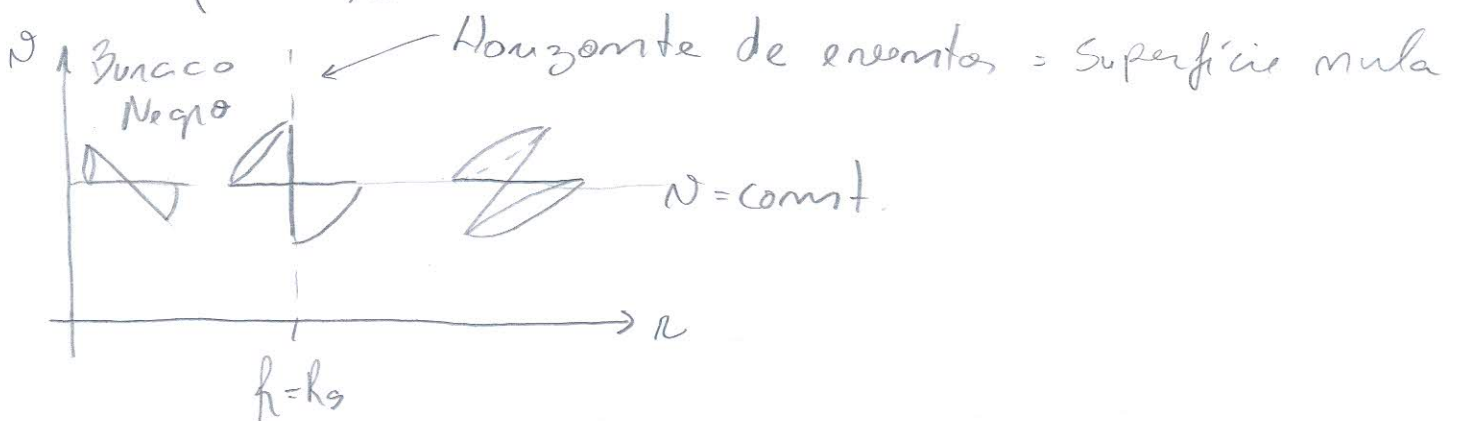 v Buraco Horizonte de eventos = Superfície nula
Negro
v = const.
r
r = rs